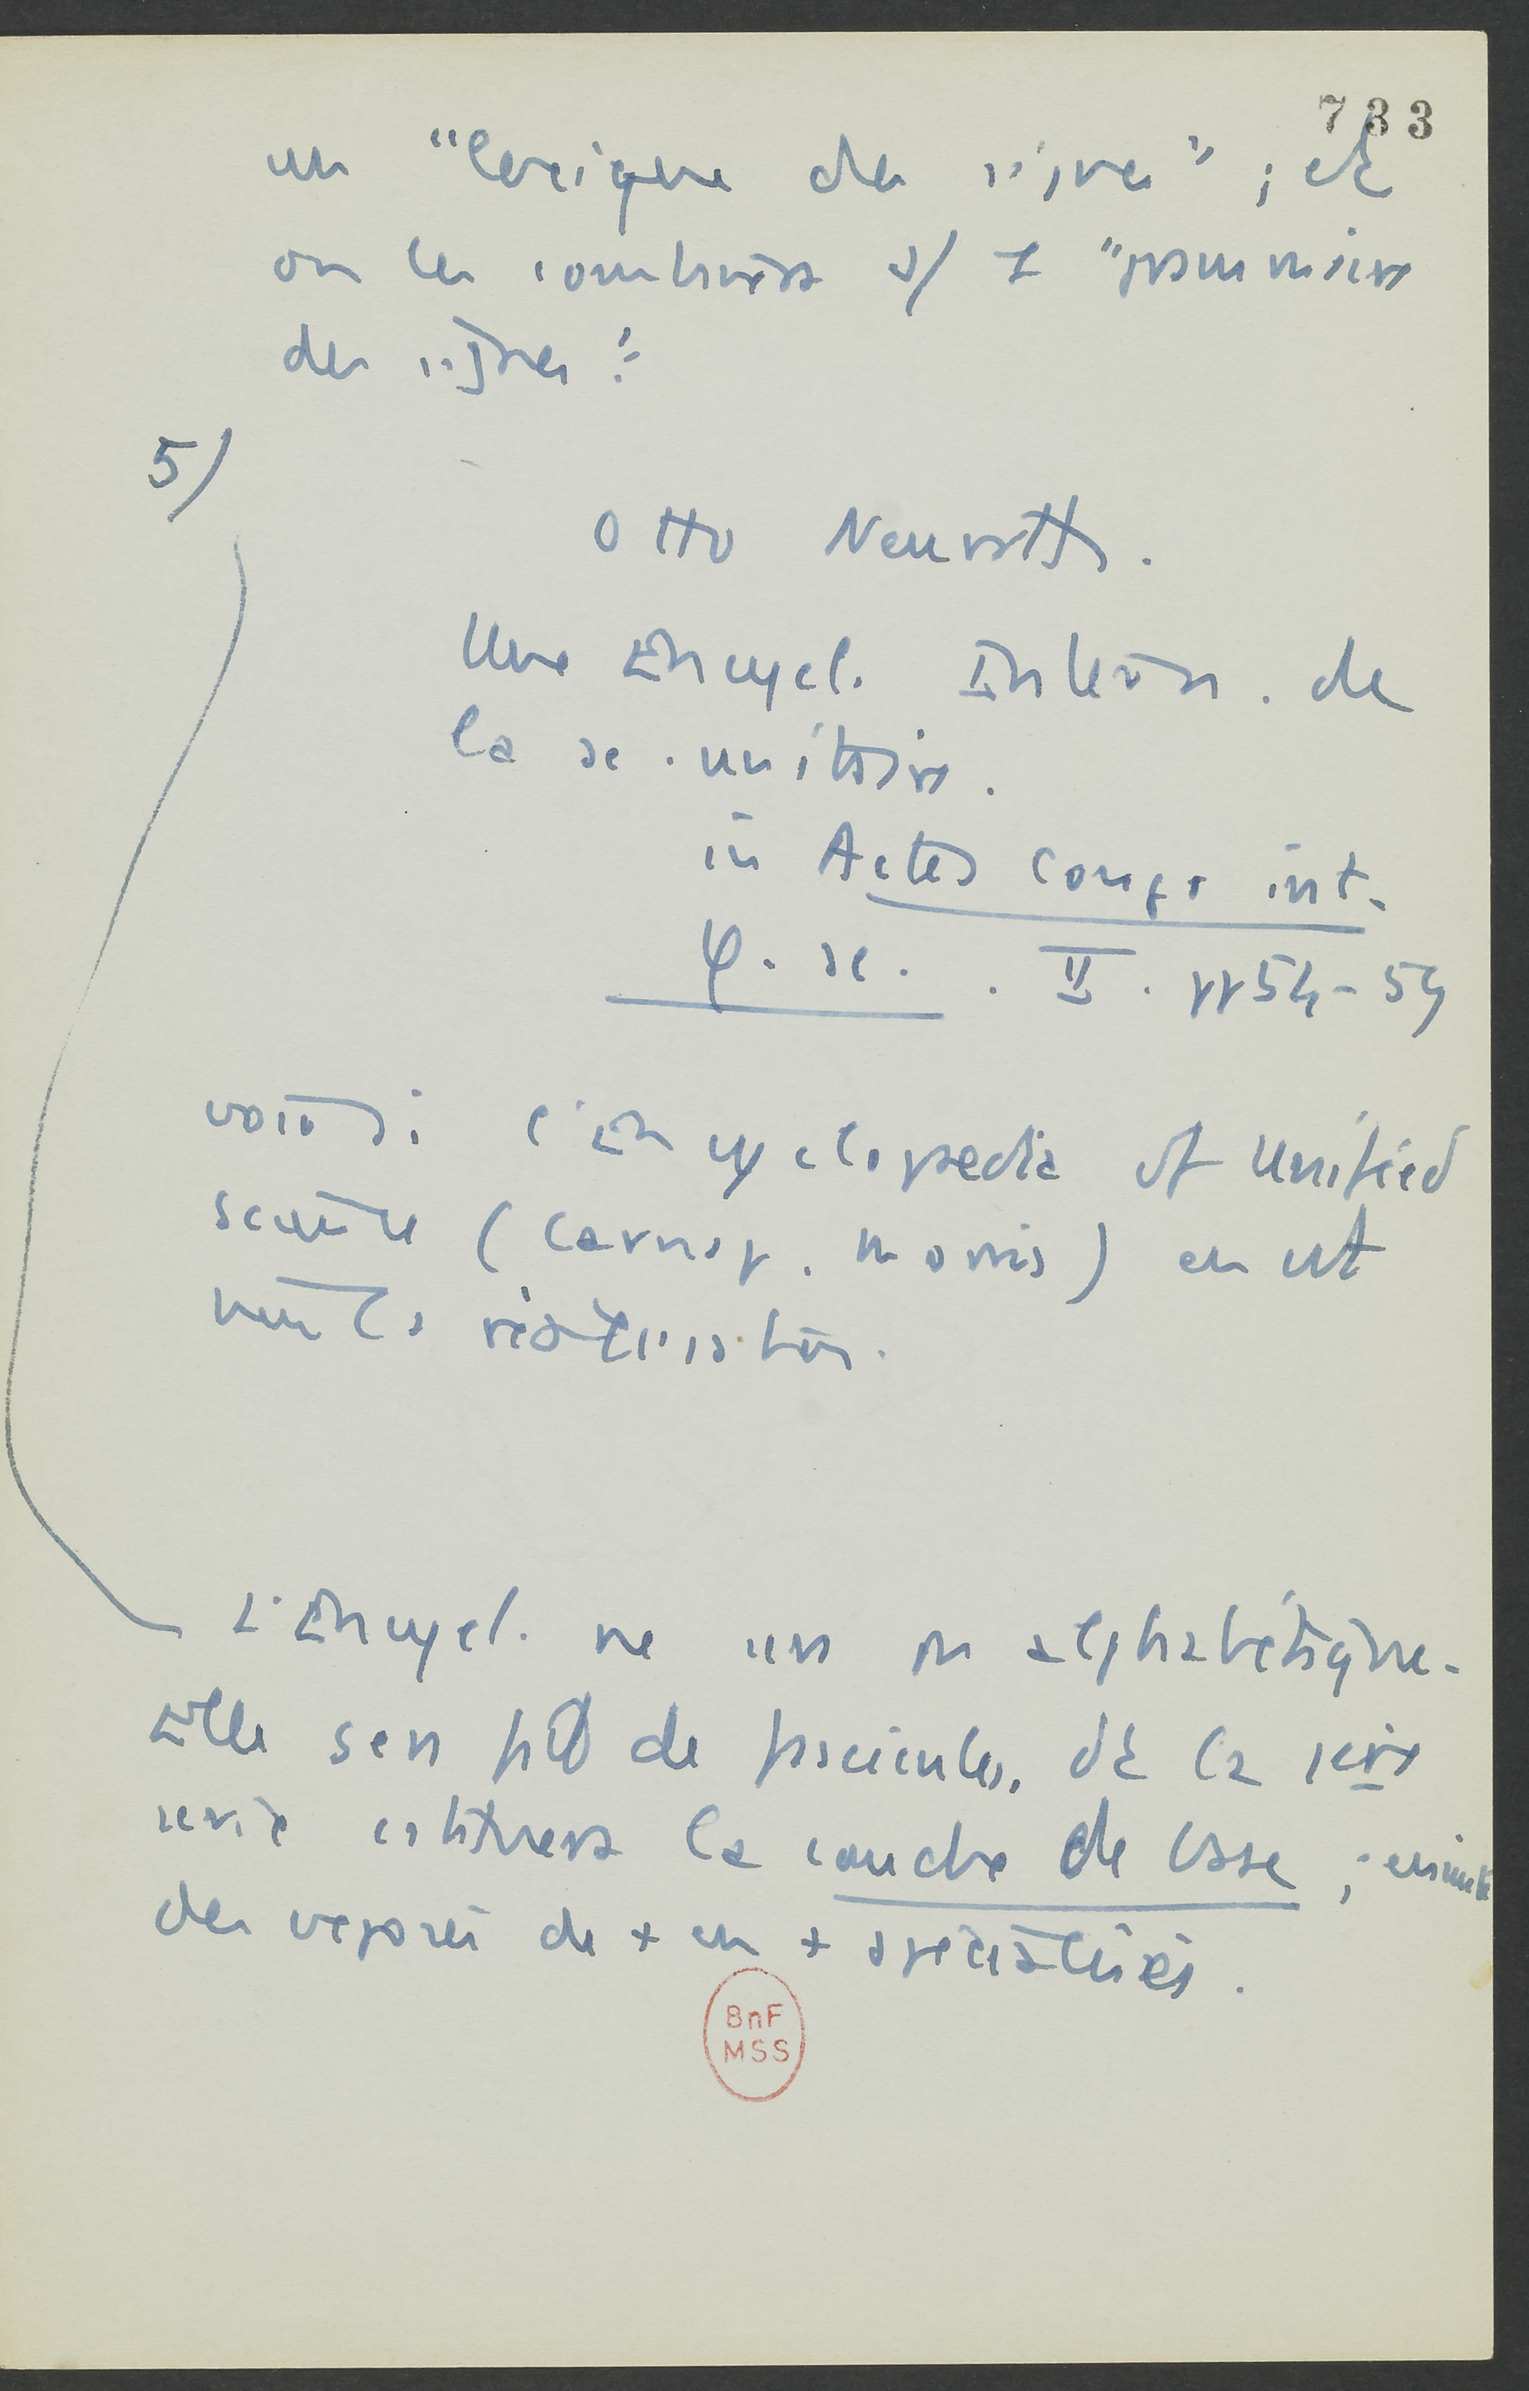 733
un "lexique des signes" ; et
on les combinera ds 1 "grammaire
des signes".
5/
Otto Neurath.
Une Encycl. Intern. de
la sc. unitaire.
in Actes Congr int.
φ. sc. . II. pp 54-59
voir si l'Encyclopedia of Unified
Science (Carnap. Morris) en est
réalisation.
L'Encycl. ne sera pas alphabétique.
Elle sera de fascicules. la 1ère
série constituera la couche de base ; ensuite
des exposés de + en + spécialisés.
BnF
MSS